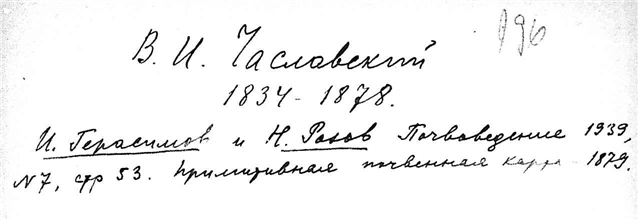 196
В. И. Чаславский
1834 - 1878.
И. Герасимов и Н. Розов Почвоведение 1939,
N7, стр 53. Примитивная почвенная карта 1879.